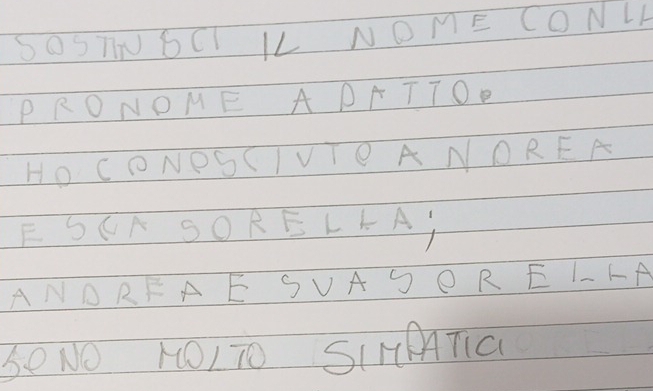 SOSTIN SCI IL NOME CON IL
PRONOME ADATTO.
HO CONOSCIUTO ANDREA
E SCA SORELLA;
ANDREA E SUA SORELLA
SONO MOLTO SIMPATICI